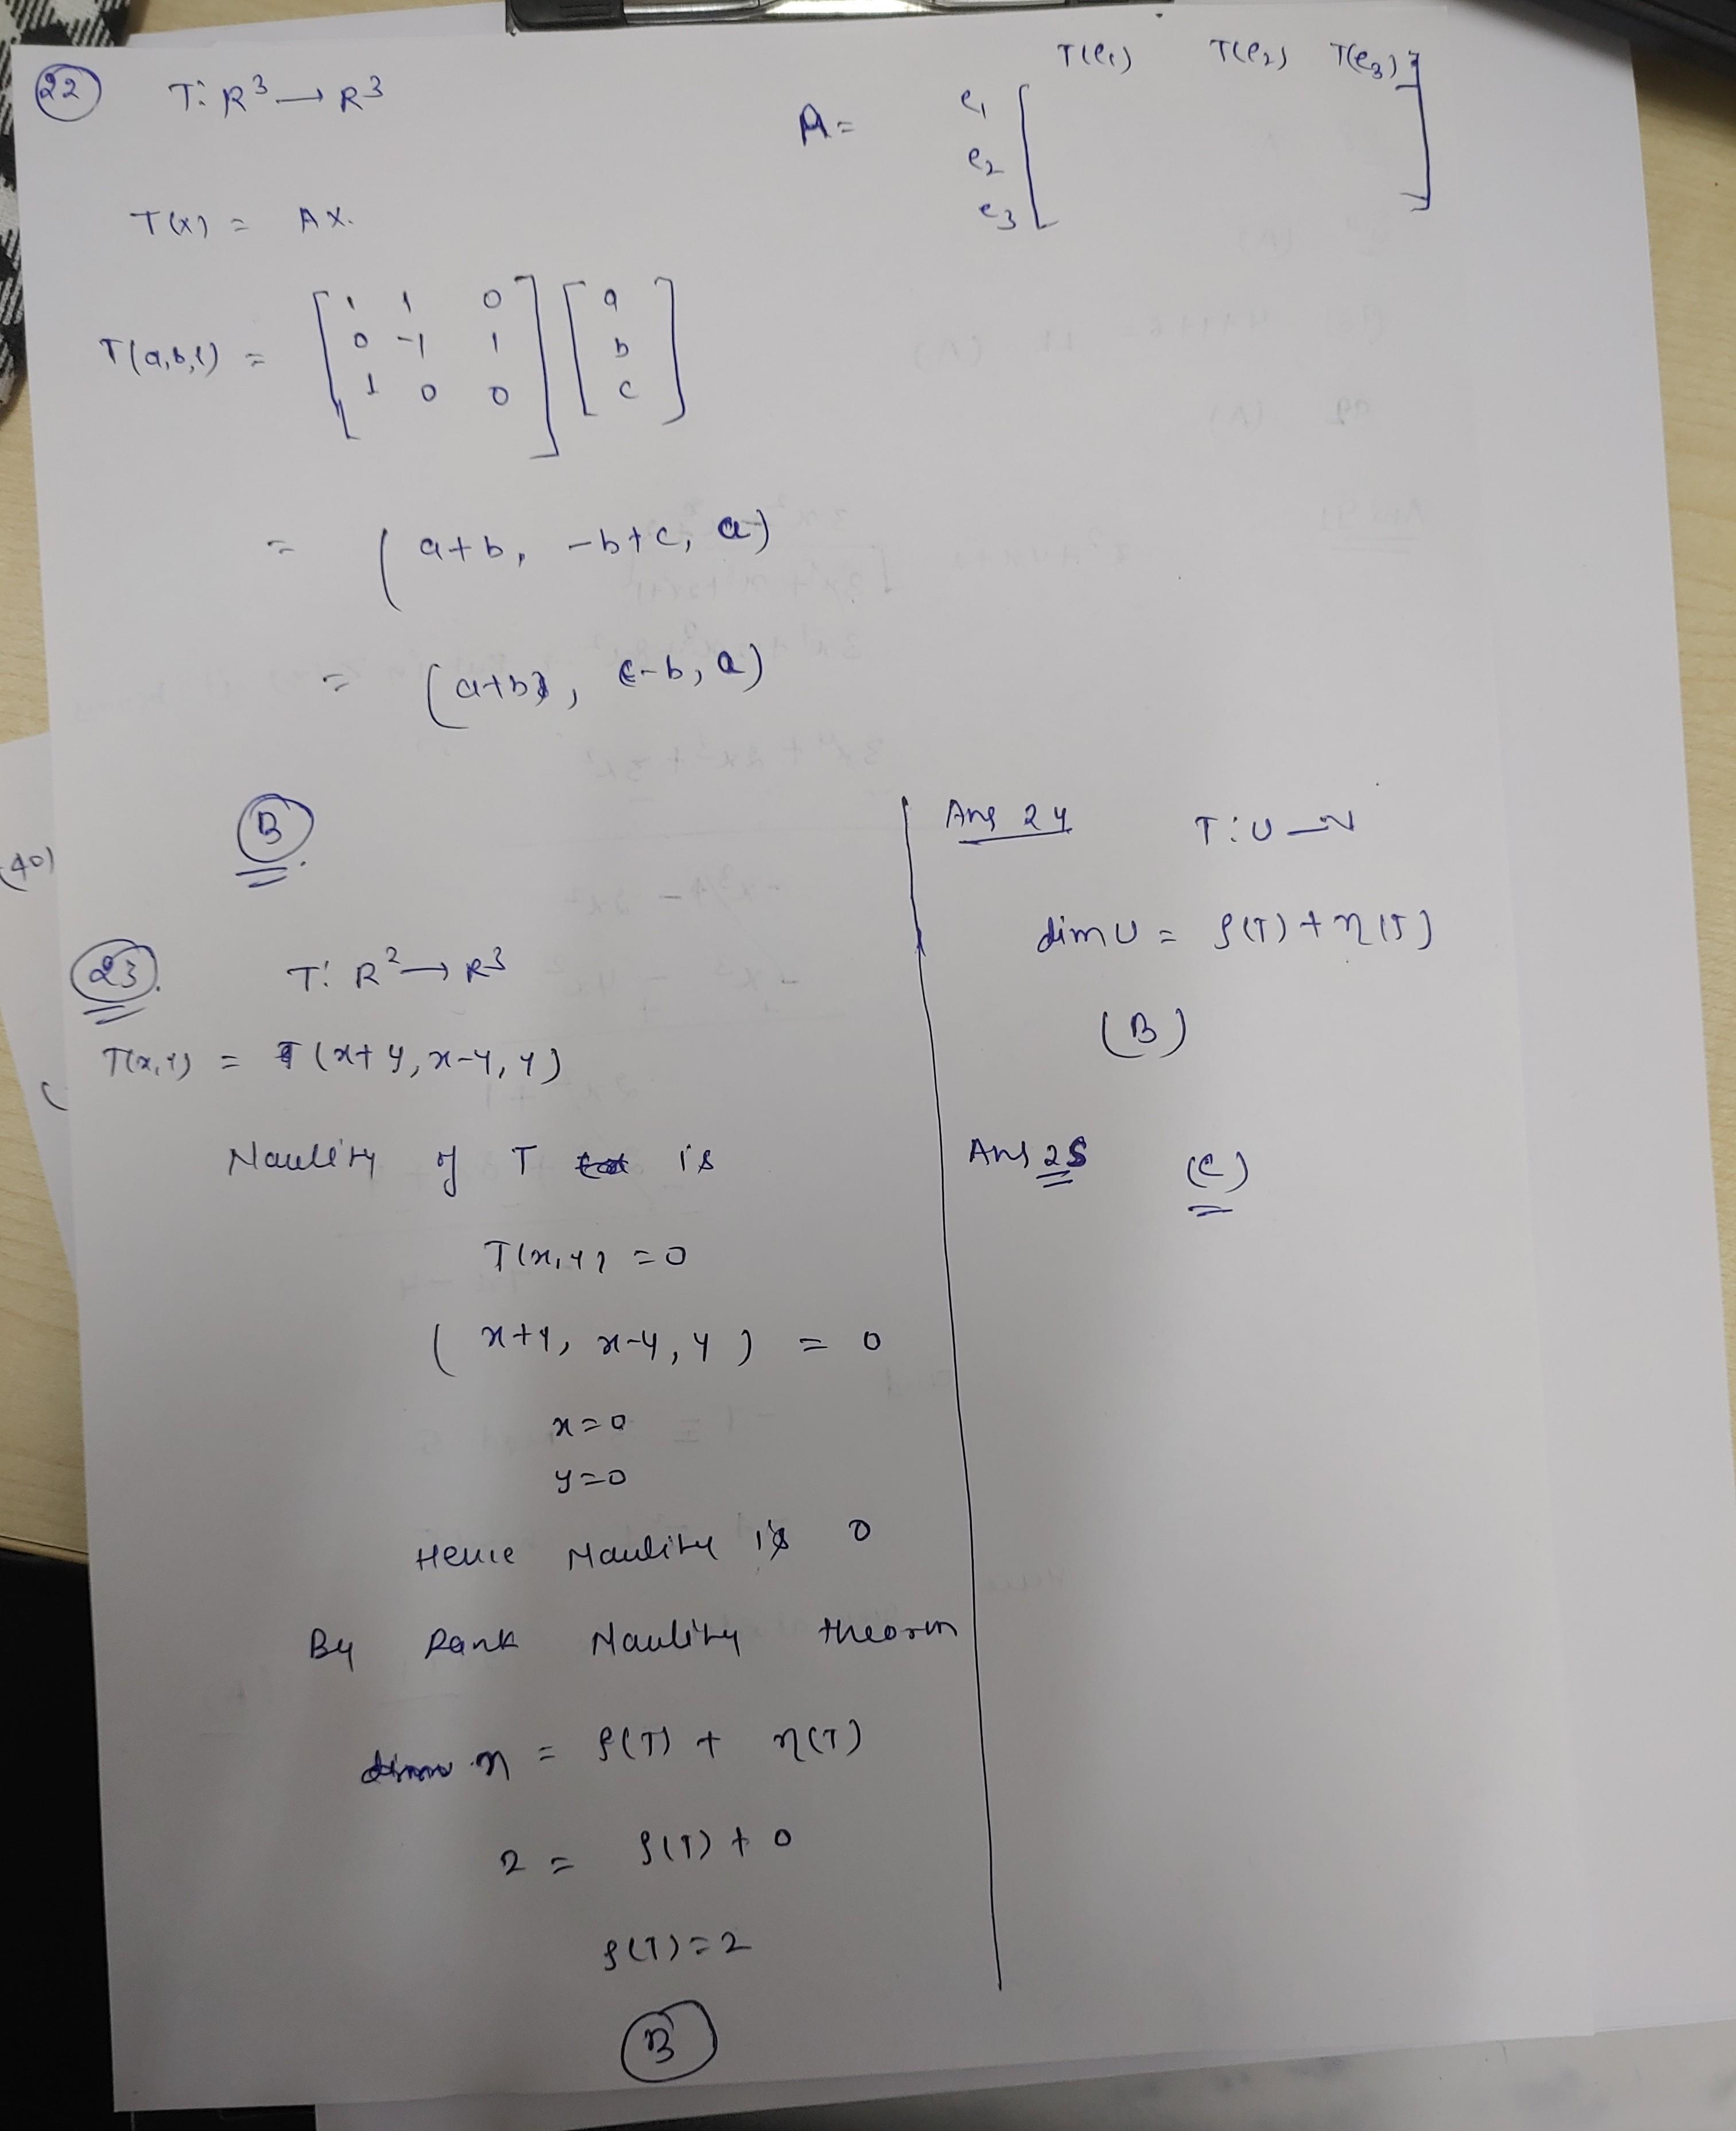 22 T: R³ → R³
T(e₁) T(e₂) T(e₃)
A = e₁
e₂
e₃
T(x) = AX.
T(a,b,c) = [ 1 1 0 ] [ a ]
0 -1 1 b
1 0 0 c
= ( a+b, -b+c, a )
= ( a+b, c-b, a )
B
23. T: R² → R³
T(x,y) = (x+y, x-y, y)
Naulity of T is
T(x,y) = 0
( x+y, x-y, y ) = 0
x=0
y=0
Hence Naulity is 0
By Rank Naulity theorm
n = ρ(T) + η(T)
2 = ρ(T) + 0
ρ(T)=2
B
Ans 24 T: U → V
dim U = ρ(T) + η(T)
(B)
Ans 25 (C)
(40)